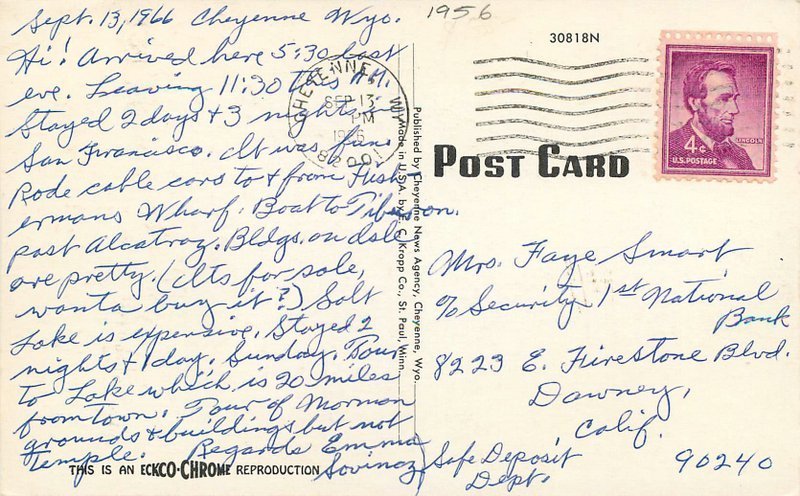 Sept. 13, 1966 Cheyenne Wyo.
Hi! Arrived here 5:30 last
eve. Leaving 11:30 this A.M.
Stayed 2 days & 3 nights in
San Francisco. It was fun.
Rode cable cars to & from Fish-
ermans Wharf. Boat to Tiburon.
past Alcatraz. Bldgs. on isle
are pretty. (Its for sale,
wanta buy it?) Salt
Lake is expensive. Stayed 2
nights & 1 day. Sunday. Tour
to Lake which is 20 miles
from town. Tour of Mormon
grounds & buildings but not
Temple. Regards Emma
Sovinoz
THIS IS AN ECKCO-CHROME REPRODUCTION
Published by Cheyenne News Agency, Cheyenne, Wyo.
Made in U.S.A. by E. C. Kropp Co., St. Paul, Minn.
1956
30818N
CHEYENNE, WYO.
SEP 13
PM
1966
82001
POST CARD
LINCOLN
4¢
U.S. POSTAGE
Mrs. Faye Smart
% Security 1st National
Bank
8223 E. Firestone Blvd.
Downey,
Calif.
90240
Safe Deposit
Dept.